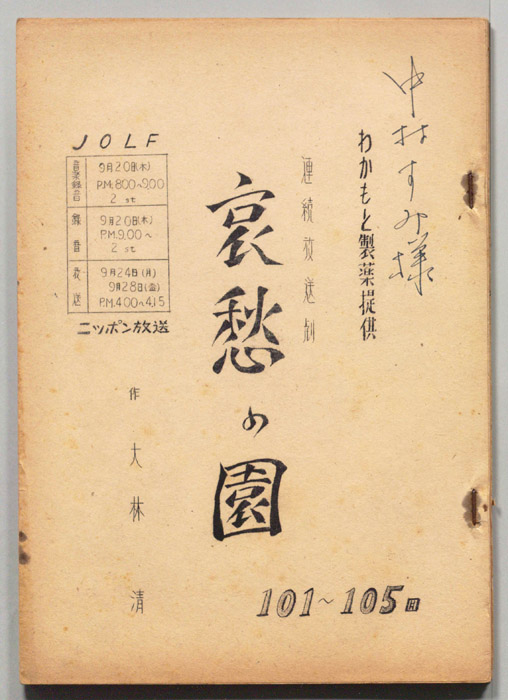 中村すみ様
わかもと製薬提供
連続放送劇
哀愁の園
101〜105回
JOLF
音楽録音
9月20日(木)
P.M.8.00〜9.00
2 st
録音
9月20日(木)
P.M.9.00〜
2 st
放送
9月24日(月)
9月28日(金)
P.M.4.00〜4.15
ニッポン放送
作 大林 清